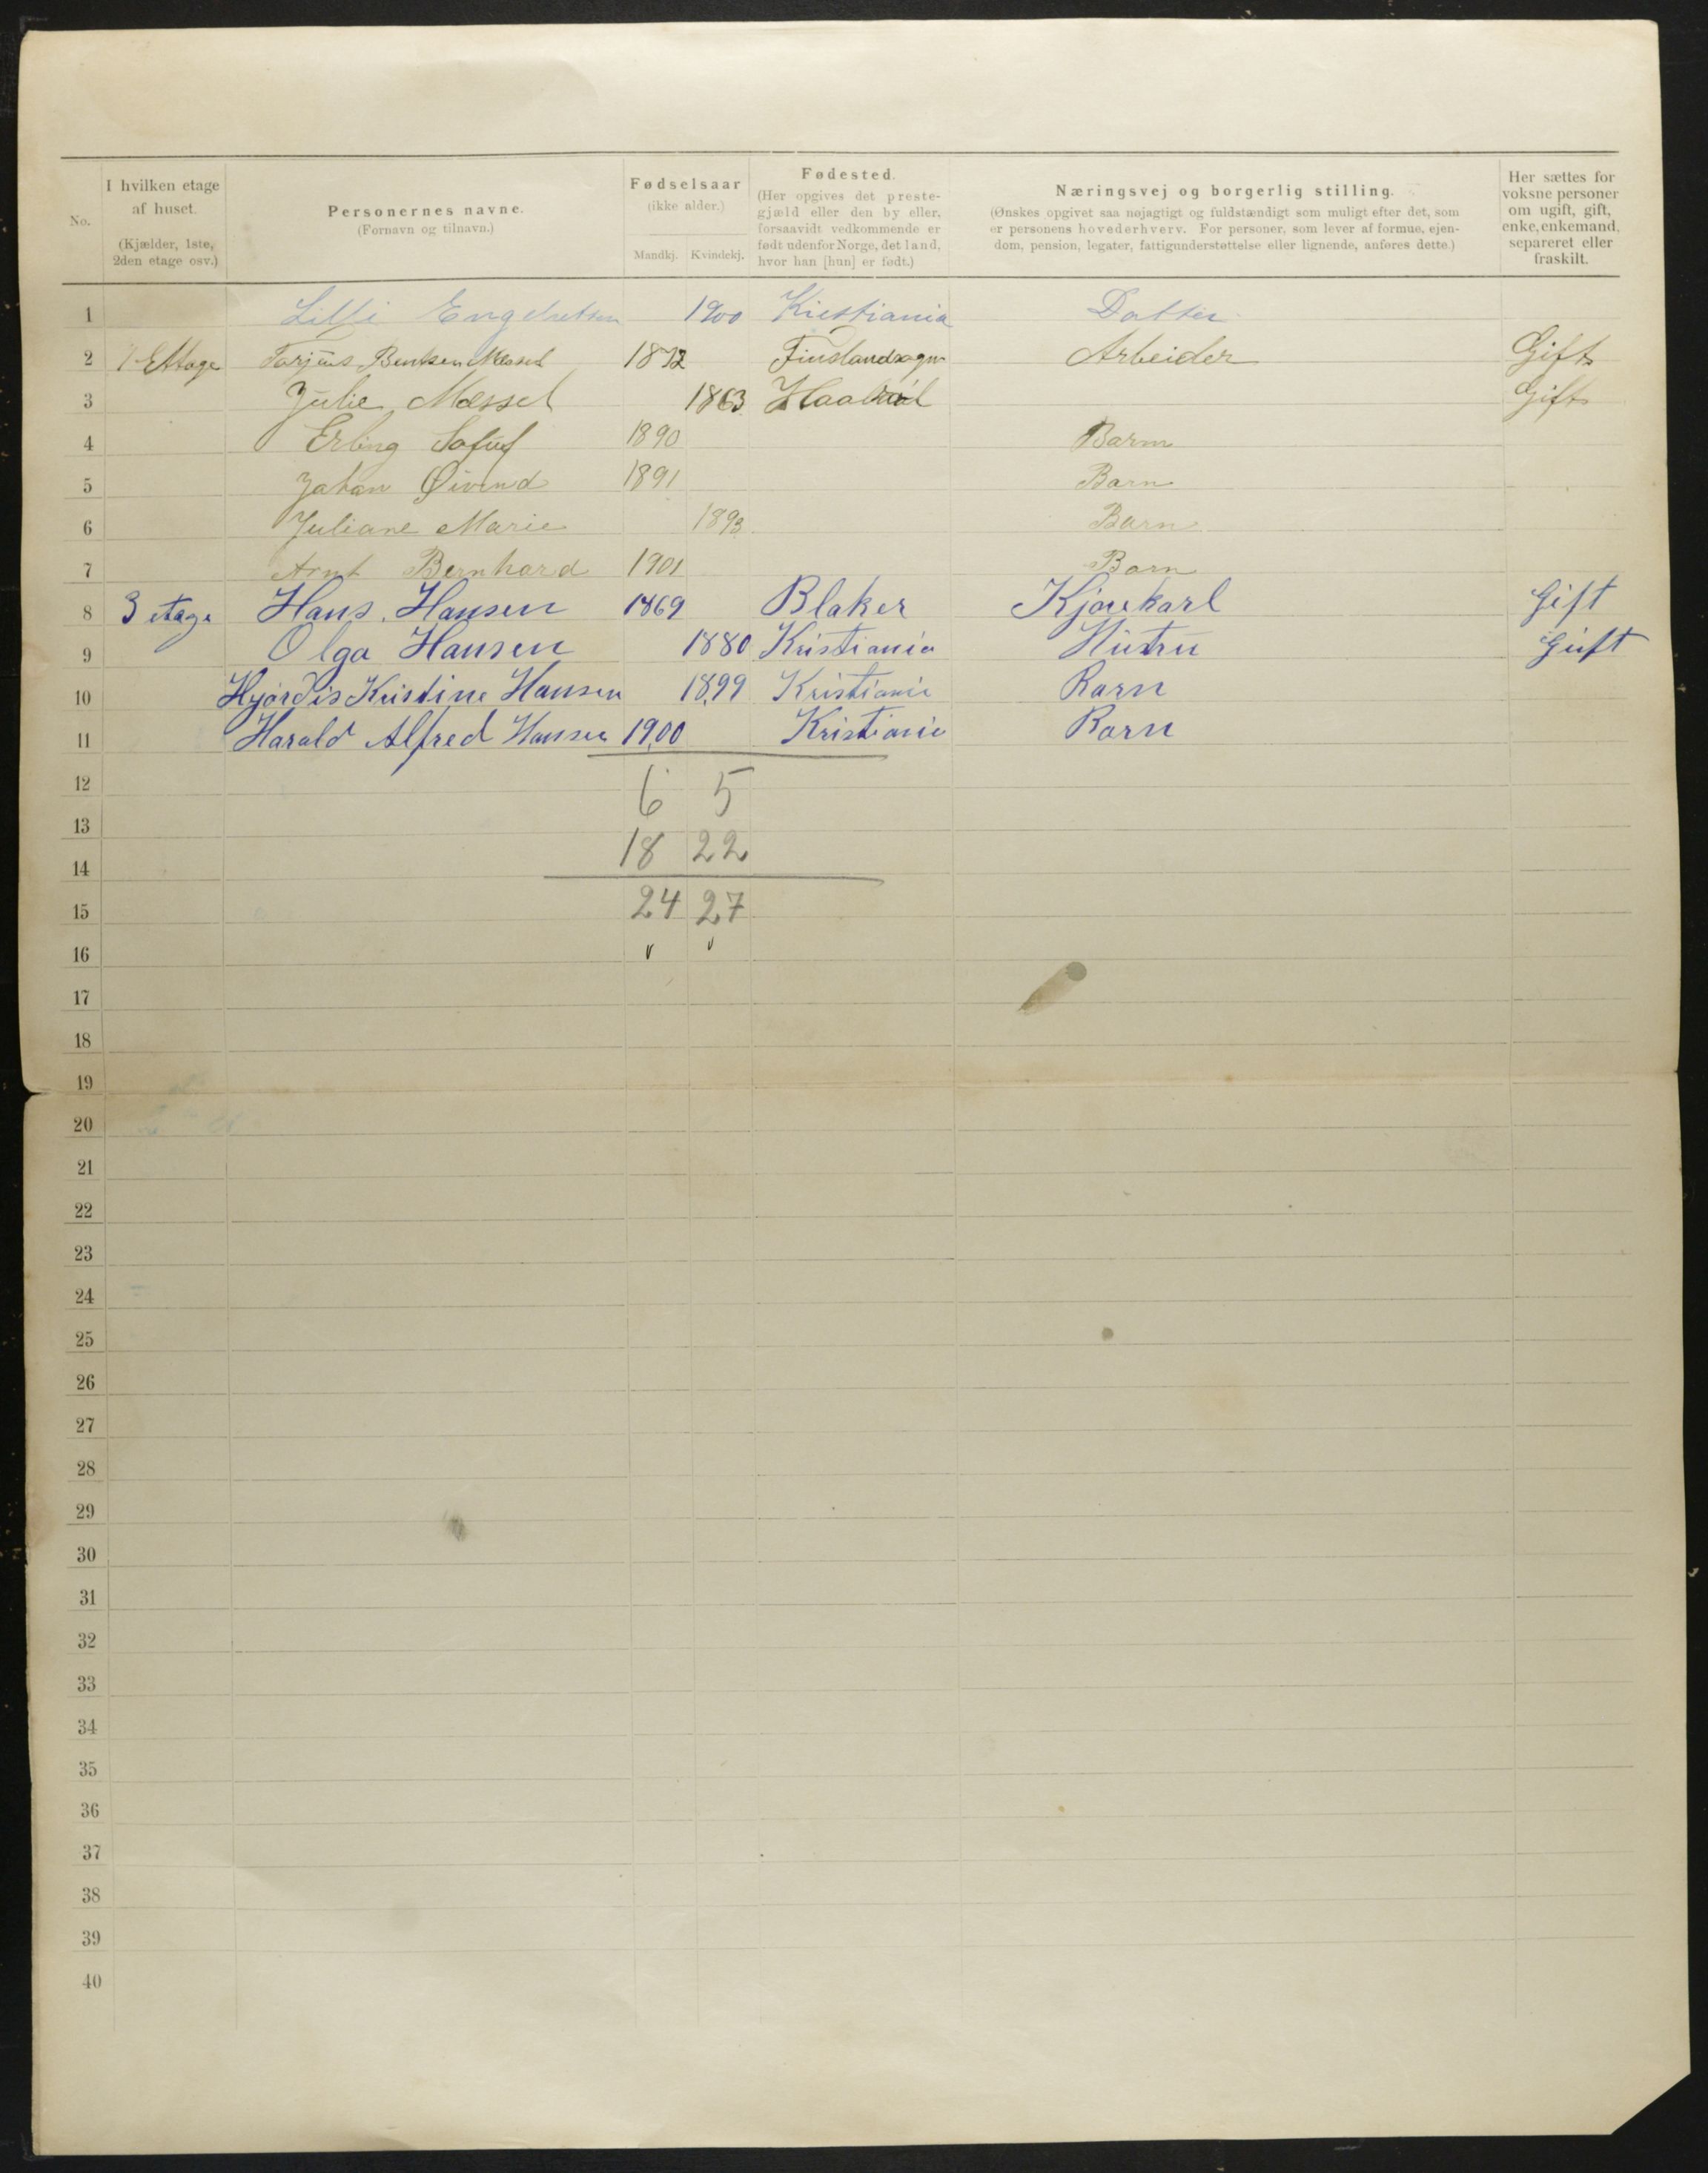 No.
I hvilken etage af huset.
(Kjælder, 1ste, 2den etage osv.)
Personernes navne.
(Fornavn og tilnavn.)
Fødselsaar
(ikke alder.)
Mandkj. Kvindekj.
Fødested.
(Her opgives det preste-
gjæld eller den by eller,
forsaavidt vedkommende er
født udenfor Norge, det land,
hvor han [hun] er født.)
Næringsvej og borgerlig stilling.
(Ønskes opgivet saa nøjagtigt og fuldstændigt som muligt efter det, som
er personens hovederhverv. For personer, som lever af formue, ejen-
dom, pension, legater, fattigunderstøttelse eller lignende, anføres dette.)
Her sættes for
voksne personer
om ugift, gift,
enke, enkemand,
separeret eller
fraskilt.
1 Lilli 1900 Kristiania Datter
2 1 Etage Tarjus Bentsen Messel 1872 Finslandsogn Arbeider Gift
3 Julie Messel 1863 Gift
4 Erling 1890 Barn
5 Johan Øivind 1891 Barn
6 Juliane Marie 1893 Barn
7 Arnt Bernhard 1901 Barn
8 3 etage Hans. Hansen 1869 Blaker Kjørekarl Gift
9 Olga Hansen 1880 Kristiania Hustru Gift
10 Hjördis Kristine Hansen 1899 Kristiania Barn
11 Harald Alfred Hansen 1900 Kristiania Barn
12 6 5
13
14 18 22
15 24 27
16
17
18
19
20
21
22
23
24
25
26
27
28
29
30
31
32
33
34
35
36
37
38
39
40